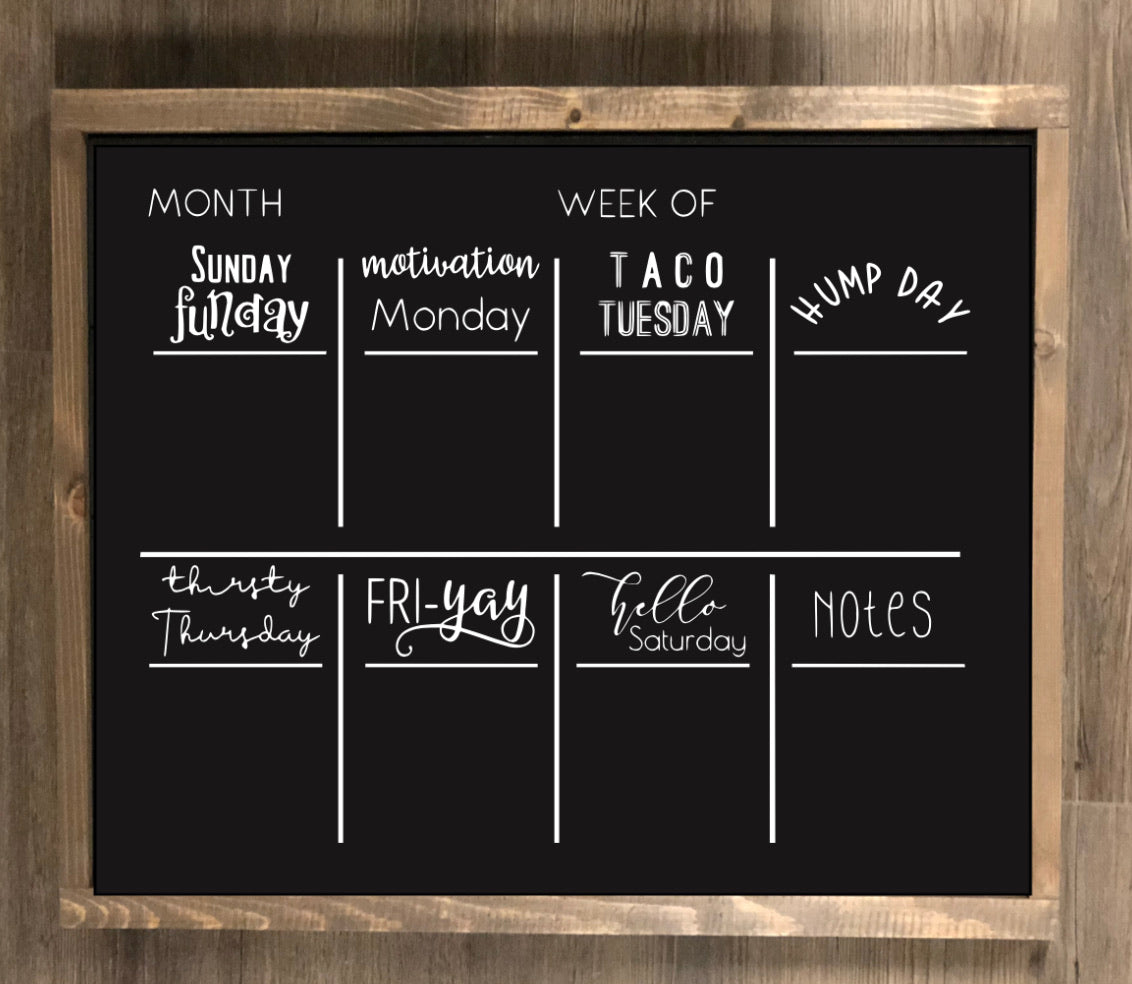 MONTH WEEK OF
SUNDAY
funday
motivation
Monday
TACO
TUESDAY
HUMP DAY
thirsty
Thursday
FRI-yay
hello
Saturday
Notes